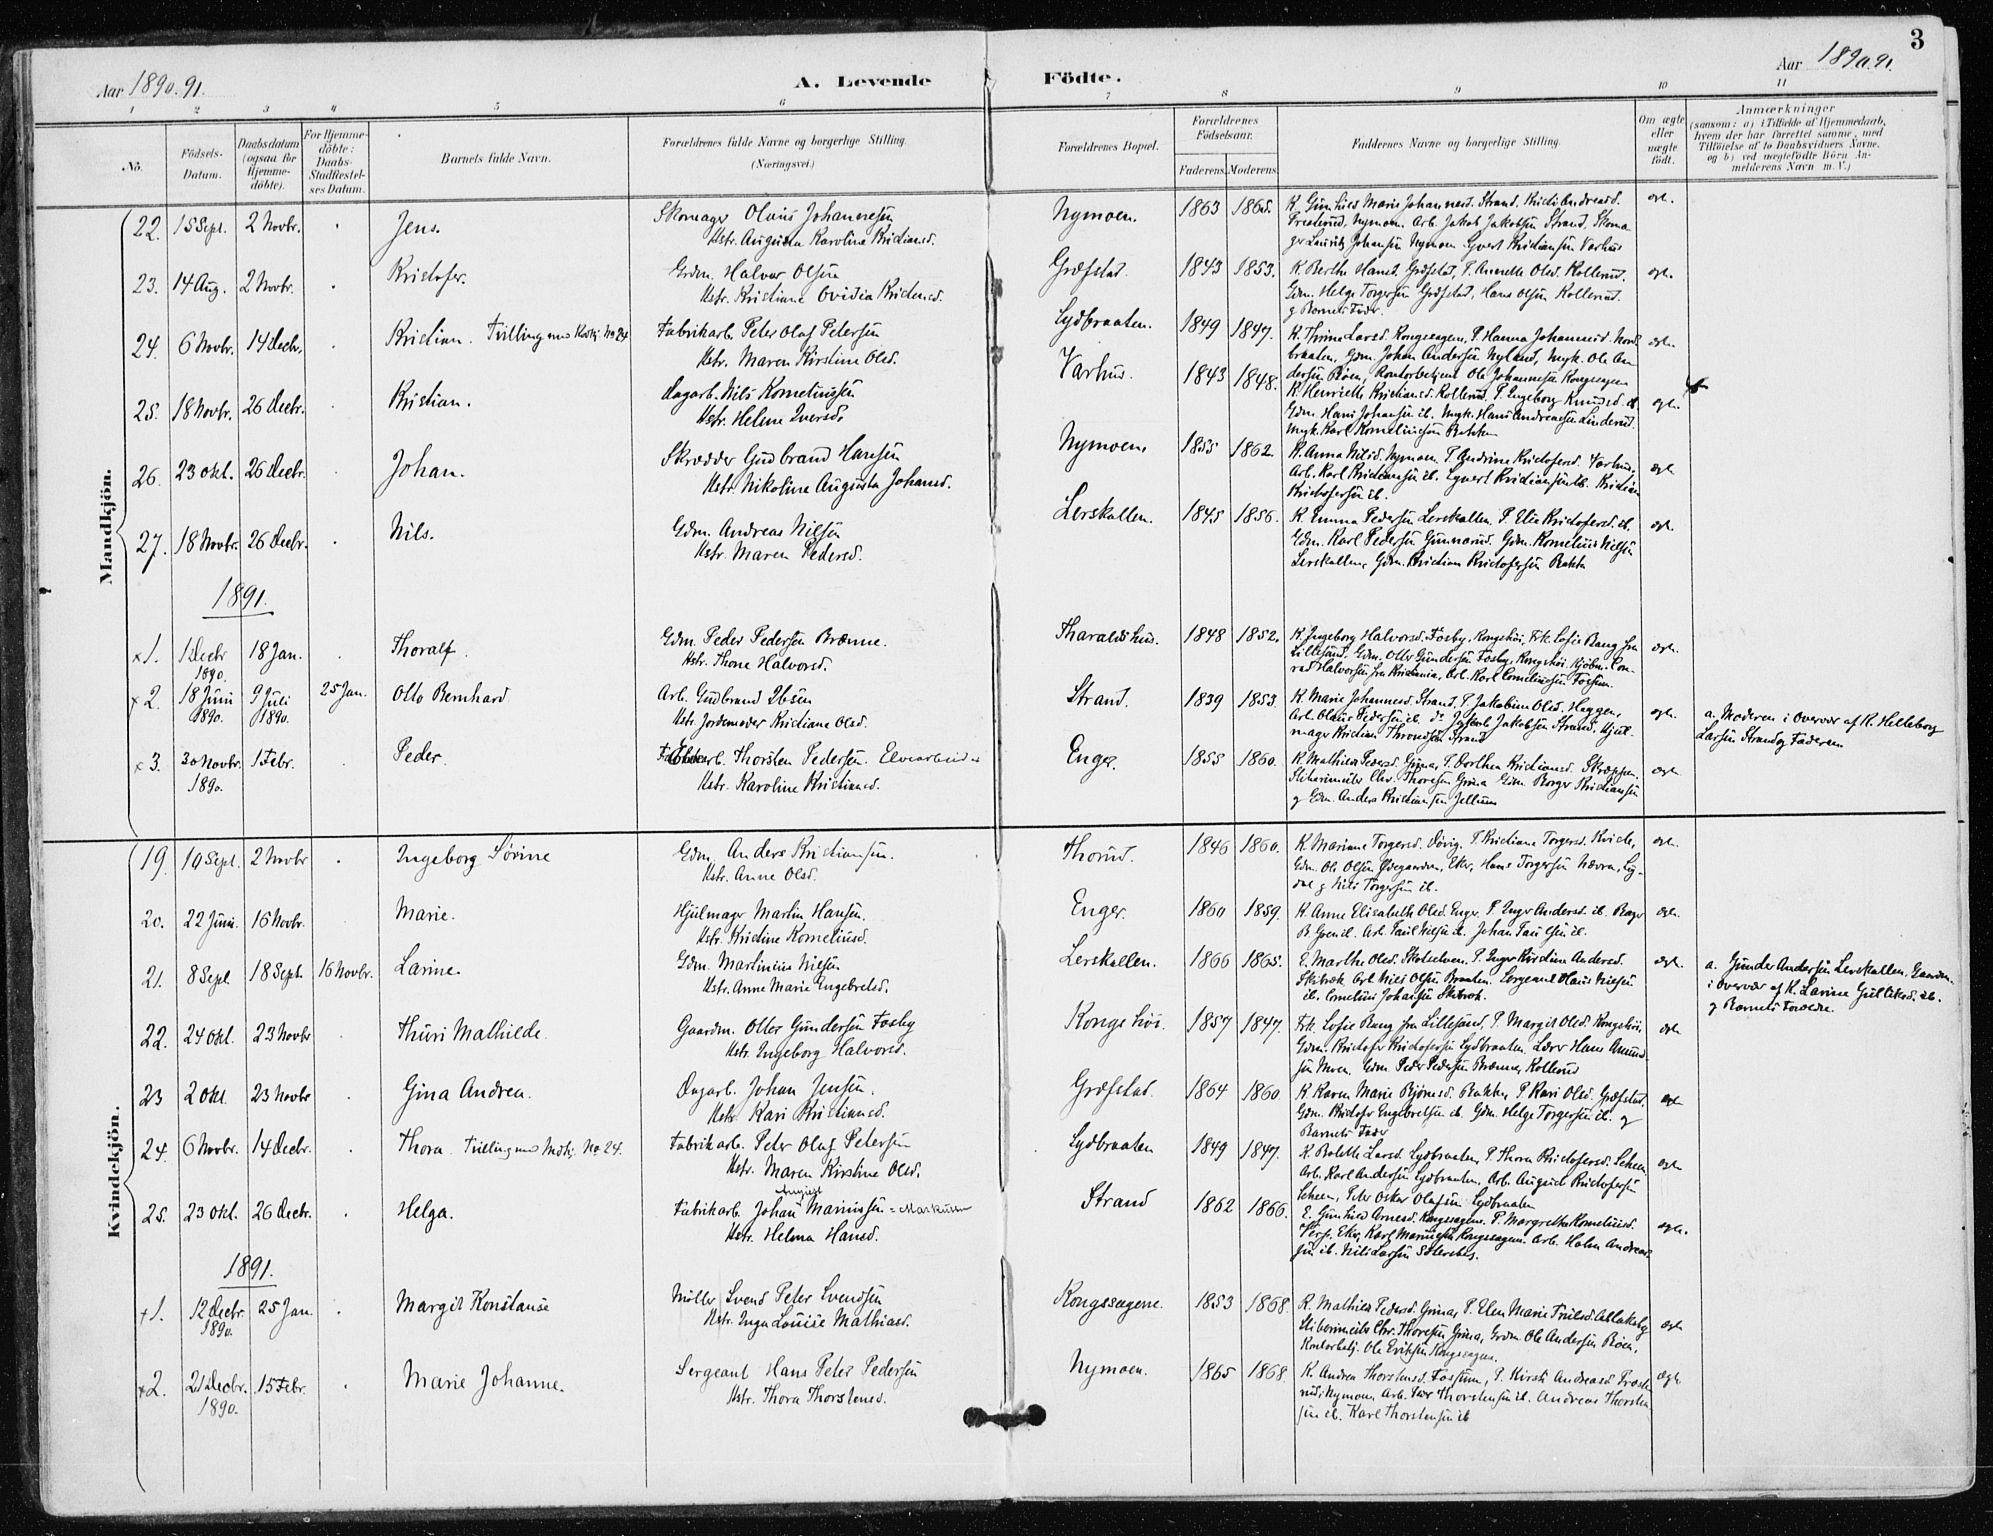 3
Aar 1890.91.
A. Levende
Födte.
Aar 1890.91.
1 2 3 4 5 6 7 8 9 10 11
No.
Födsels-
Datum.
Daabsdatum
(ogsaa for
Hjemme-
döbte).
For Hjemme-
döbte:
Daabs-
Stadfæstel-
ses Datum.
Barnets fulde Navn.
Forældrenes fulde Navne og borgerlige Stilling.
(Næringsvei.)
Forældrenes Bopæl.
Forældrenes
Födselsaar.
Faderens. Moderens.
Faddernes Navne og borgerlige Stilling.
Om ægte
eller
uægte
födt.
Anmærkninger
(saasom: a) i Tilfælde af Hjemmedaab,
hvem der har forrettet samme, med
Tilföielse af to Daabsvidners Navne,
og b) ved uægtefödte Börn An-
melderens Navn m. V.)
Mandkjön.
22. 15 Sept. 2 Novbr. Jens. Skomager Olaus Johannesen
Hstr. Augusta Karoline Kristiansd.
Nymoen. 1863 1865. K. Gunhild Marie Johannesd. Strand. Kirsti Andreasd.
Nymoen. Arb. Jakob Jakobsen Strand. Skoma
ger Lauritz Johansen Nymoen Syvert Kristiansen Varhus
egt.
23. 14 Aug. 2 Novbr. Kristofer. Grdm. Halvor Olsen
Hstr. Kristiane Ovidia Kristensd.
Græfstad. 1843 1853. K. Berthe Hansd. Græfstad, P. Annette Olsd. Kollerud.
Gdm. Helge Torgersen Græfstad, Hans Olsen Kollerud.
g Barnets Fader.
egt.
24. 6 Novbr. 14 Decbr. Kristian. Tvilling med Kvdkj. No 24 Fabrikarb. Peter Olaf Petersen
Hstr. Maren Kirstine Olsd.
Lydbraaten. 1849 1847. K. Thrine Larsd. Kongssagen, P. Hanna Johannesd. Nord
braaten, Gdm. Johan Andersen Nyland, Ungk. Ole An
dersen Böen, Kontorbetjent Ole Johannesen Kongssagen
egt.
25. 18 Novbr. 26 Decbr. Kristian. Dagarb. Nils Korneliussen
Hstr. Helene Iversd.
Varhus. 1843 1848. K. Henriette Kristiansd. Kollerud. P. Ingeborg Knudsd. ib.
Gdm. Hans Johansen ib. Ungk. Hans Andreassen Linderud.
Ungk. Karl Korneliussen Bakken
egt.
26. 23 Okt. 26 Decbr. Johan. Skrædder Gudbrand Hansen
Hstr. Nikoline Augusta Johansd.
Nymoen. 1855 1862. K. Anna Nilsd. Nymoen. P. Andrine Kristofersd. Varhus.
Arb. Karl Kristiansen ib. Syvert Kristiansen ib. Kristian
Kristofersen ib.
egt.
27. 18 Novbr. 26 Decbr. Nils. Gdm. Andreas Nilsen
Hstr. Maren Pedersd.
Lerskallen. 1845 1856. K. Emma Pedersen Lerskallen. P. Elise Kristofersd. ib.
Gdm. Karl Pedersen Gunnarud. Gdm. Kornelius Nilsen
Lerskallen, Gdm. Kristian Kristofersen Bakke
egt.
1891.
x1. 1 Decbr 1890. 18 Jan. Thoralf. Gdm. Peder Pedersen Brænne.
Hstr. Thone Halvorsd.
Tharaldshus. 1848 1852. K. Ingeborg Halvorsd. Fosby, Kongshöi, Frk. Sofie Bang fra
Lillesand. Gdm. Otter Gundersen Fosby, Kongshöi. Kjöbm. Con
rad Halvorsen fra Kristiania, Arb. Karl Corneliussen Fossum.
egt.
x2. 18 Juni 1890. 9 Juli 1890. 25 Jan. Otto Bernhard Arb. Gudbrand Ibsen
Hstr. Jordemoder Kristiane Olsd.
Strand. 1839 1853. K. Marie Johannesd. Strand. P. Jakobine Olsd. Haggen,
Arb. Olaus Pedersen ib. Do Jakobsen Strand. Hjul
mager Kristian Throndsen Strand
egt. a. Moderen i Overvær af K. Helleborg
Larsen Strand og Faderen
x3. 30 Novbr. 1890. 1 Febr. Peder. Thorsten Pedersen. Elvearbeider
Hstr. Karoline Kristiansd.
Enger. 1855 1860. K. Mathilde Pedersd. Gruna, P. Dorthea Kristiansd. Skreppen.
Stiboimeister Chr. Thoresen Gruna Gdm. Borger Kristiansen
g Gdm. Anders Kristiansen Jellum
egt.
Kvindekjön.
19. 10 Sept. 2 Novbr Ingeborg Sörine Gdm. Anders Kristiansen.
Hstr. Anne Olsd.
Thorud. 1846 1860. K. Mariane Torgersd. Dövig. P. Kristiane Torgersd. Kvisle,
Gdm. Ole Olsen Ödegaarden, Eker, Hans Torgersen Nævra, Sig-
dal g Nils Torgersen ib.
egt.
20. 22 Juni. 16 Novbr. Marie. Hjulmager Martin Hansen.
Hstr. Kristine Korneliusd.
Enger. 1860 1859. K. Anne Elisabeth Olsd. Enger. P. Inger Andersd. ib.
Arb. Paul Nilsen ib. Johan Paulsen ib.
egt.
21. 8 Sept. 18 Sept. 16 Novbr. Larine. Gdm. Martinius Nilsen
Hstr. Anne Marie Engebretsd.
Lerskallen. 1866 1865. E. Marthe Olsd. P. Inger Kristine Andersd.
Arb. Nils Olsen Braaten. Sergeant Hans Nilsen
ib. Cornelius Johansen
egt. a. Gunder Andersen Lerskallen, Gaardm.
i Overvær af K. Larine Gulliksd. ib.
g Barnets Forældre.
22. 24 Okt. 23 Novbr Thuri Mathilde. Gaardm. Otter Gundersen Fosby
Hstr. Ingeborg Halvorsd.
Kongshöi. 1857 1847. Frk. Sofie Bang fra Lillesand, P. Margit Olsd. Kongshöi,
Gdm. Kristofer Kristofersen Lydbraaten. Lærer Hans Amund
sen Moen. Gdm. Peder Pedersen Brænne, Kollerud
egt.
23 2 Okt. 23 Novbr Gina Andrea. Dagarb. Johan Jensen.
Hstr. Kari Kristiansd.
Græfstad. 1864 1860 K. Karen Marie Björnsd. Bakke, P. Kari Olsd. Græfstad.
Gdm. Kristofer Engebretsen ib. Gdm. Helge Torgersen ib. g
Barnets Fader
egt
24. 6 Novbr. 14 Decbr. Thora. Tvilling med Mdkj. No 24. Fabrikarb. Peter Olaf Petersen
Hstr. Maren Kirstine Olsd.
Lydbraaten 1849 1847. K. Bolette Larsd. Lydbraaten, P. Thora Kristofersd. Scheen
Arb. Karl Andersen Lydbraaten, Arb. August Kristofersen
Scheen, Peter Oskar Olafsen Lydbraaten
egt.
25. 23 Okt. 26 Decbr. Helga. Fabrikarb. Johan August Mariussen = Markussen
Hstr. Helma Hansd.
Strand 1862 1866. E. Gunhild Arnesd. Kongssagene. P. Margrethe Korneliusd.
Eker, Karl Mariussen Kongssagen. Arb. Halvor Andreas
sen ib. Nils Larsen
egt.
1891.
x1. 12 Decbr. 1890. 25 Jan. Margit Konstanse Möller Svend Peter Svendsen
Hstr. Inga Louise Mathiasd.
Kongssagene. 1853 1868. K. Mathilde Pedersd. Gruna, P. Elen Marie
Stiboimeister Chr. Thoresen Gruna, Grdm. Ole Andersen Böen,
Kontorbetj. Ole Eriksen Kongssagen.
egt
x2. 21 Decbr. 1890. 15 Febr. Marie Johanne. Sergeant Hans Peter Pedersen
Hstr. Thora Thorstensd.
Nymoen. 1865 1868. K. Andrea Thorstensd. Fossum, P. Kirsti Andreasd.
Nymoen, Arb. Iver Thorstensen ib. Andreas Thorsten
sen ib. Karl Thorstensen ib
egt.